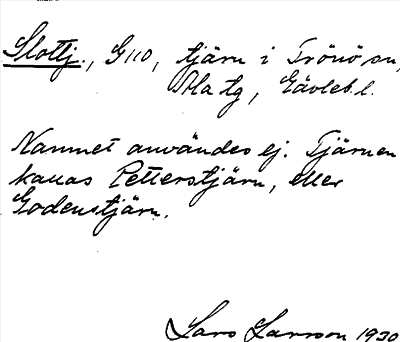 Slottj., G110, tjärn i Trönö sn,
Ala tg, Gävleb. l.
Namnet användes ej. Tjärnen
kallas Petterstjärn, eller
Godenstjärn.
Lars Larsson 1930